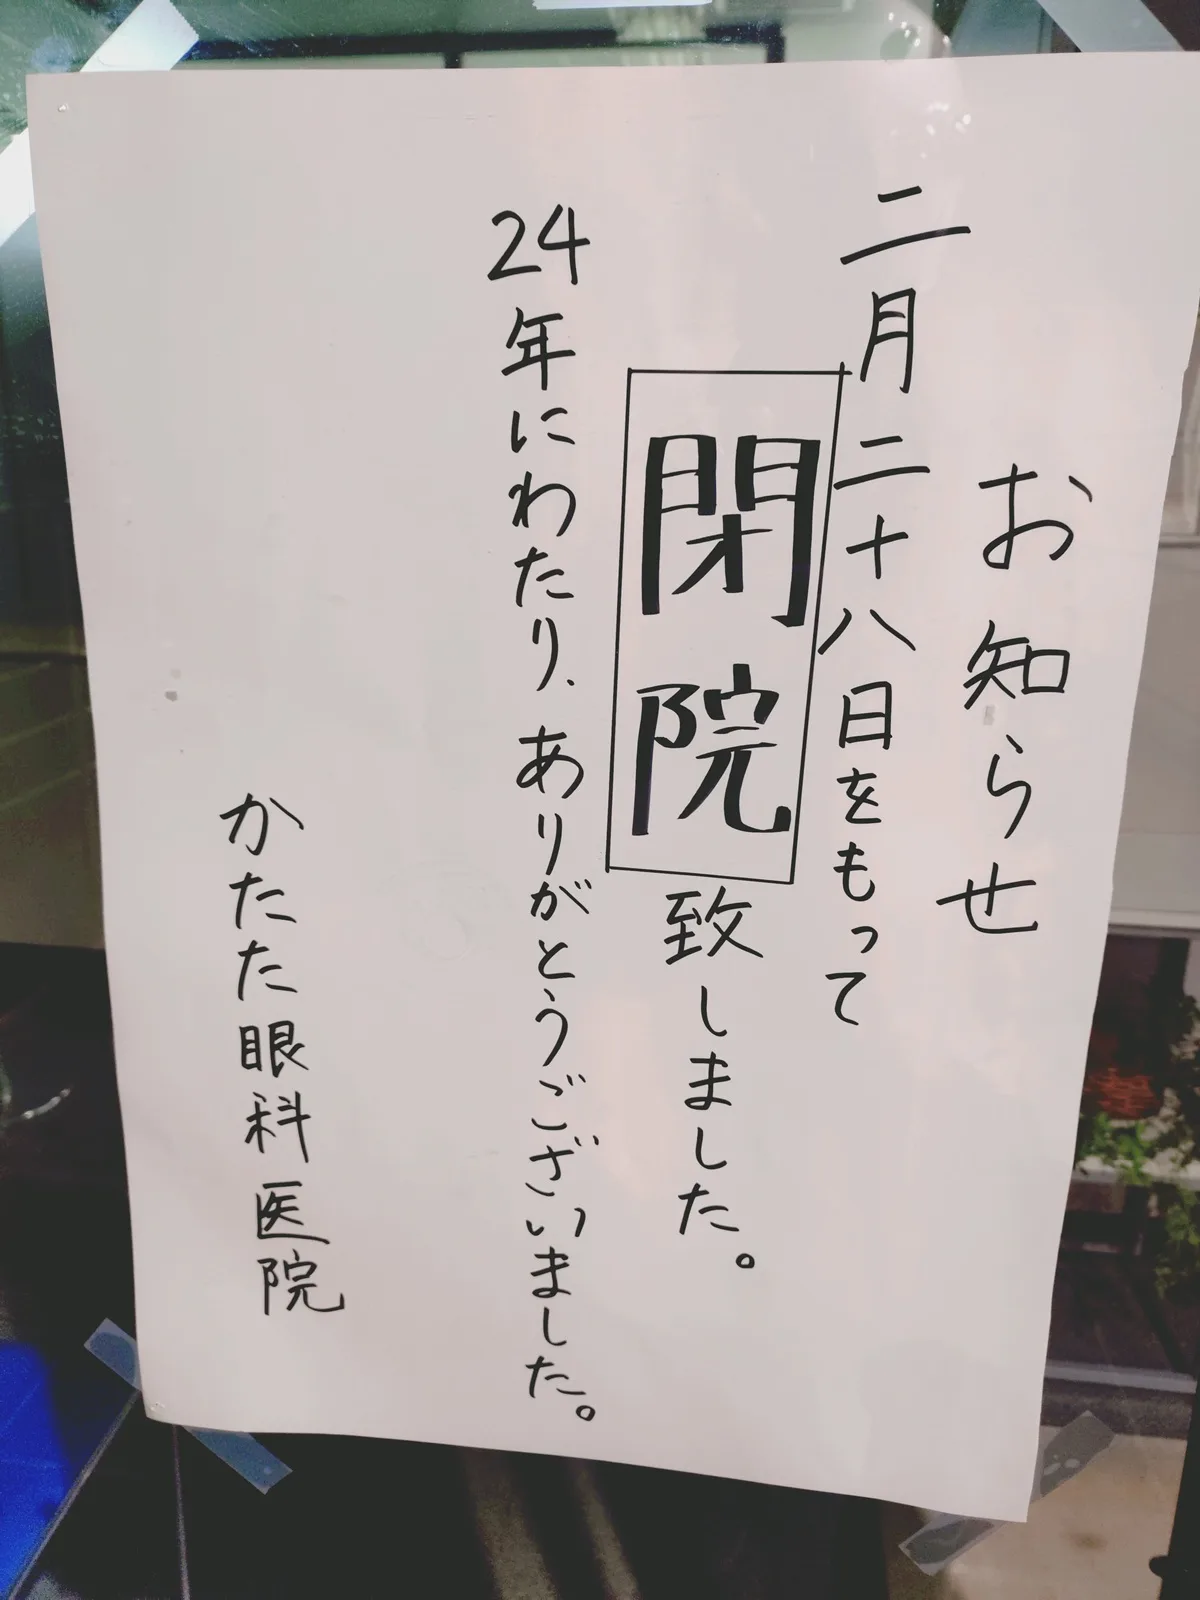 お知らせ
二月二十八日をもって
閉院致しました。
24年にわたり、ありがとうございました。
かたた眼科医院